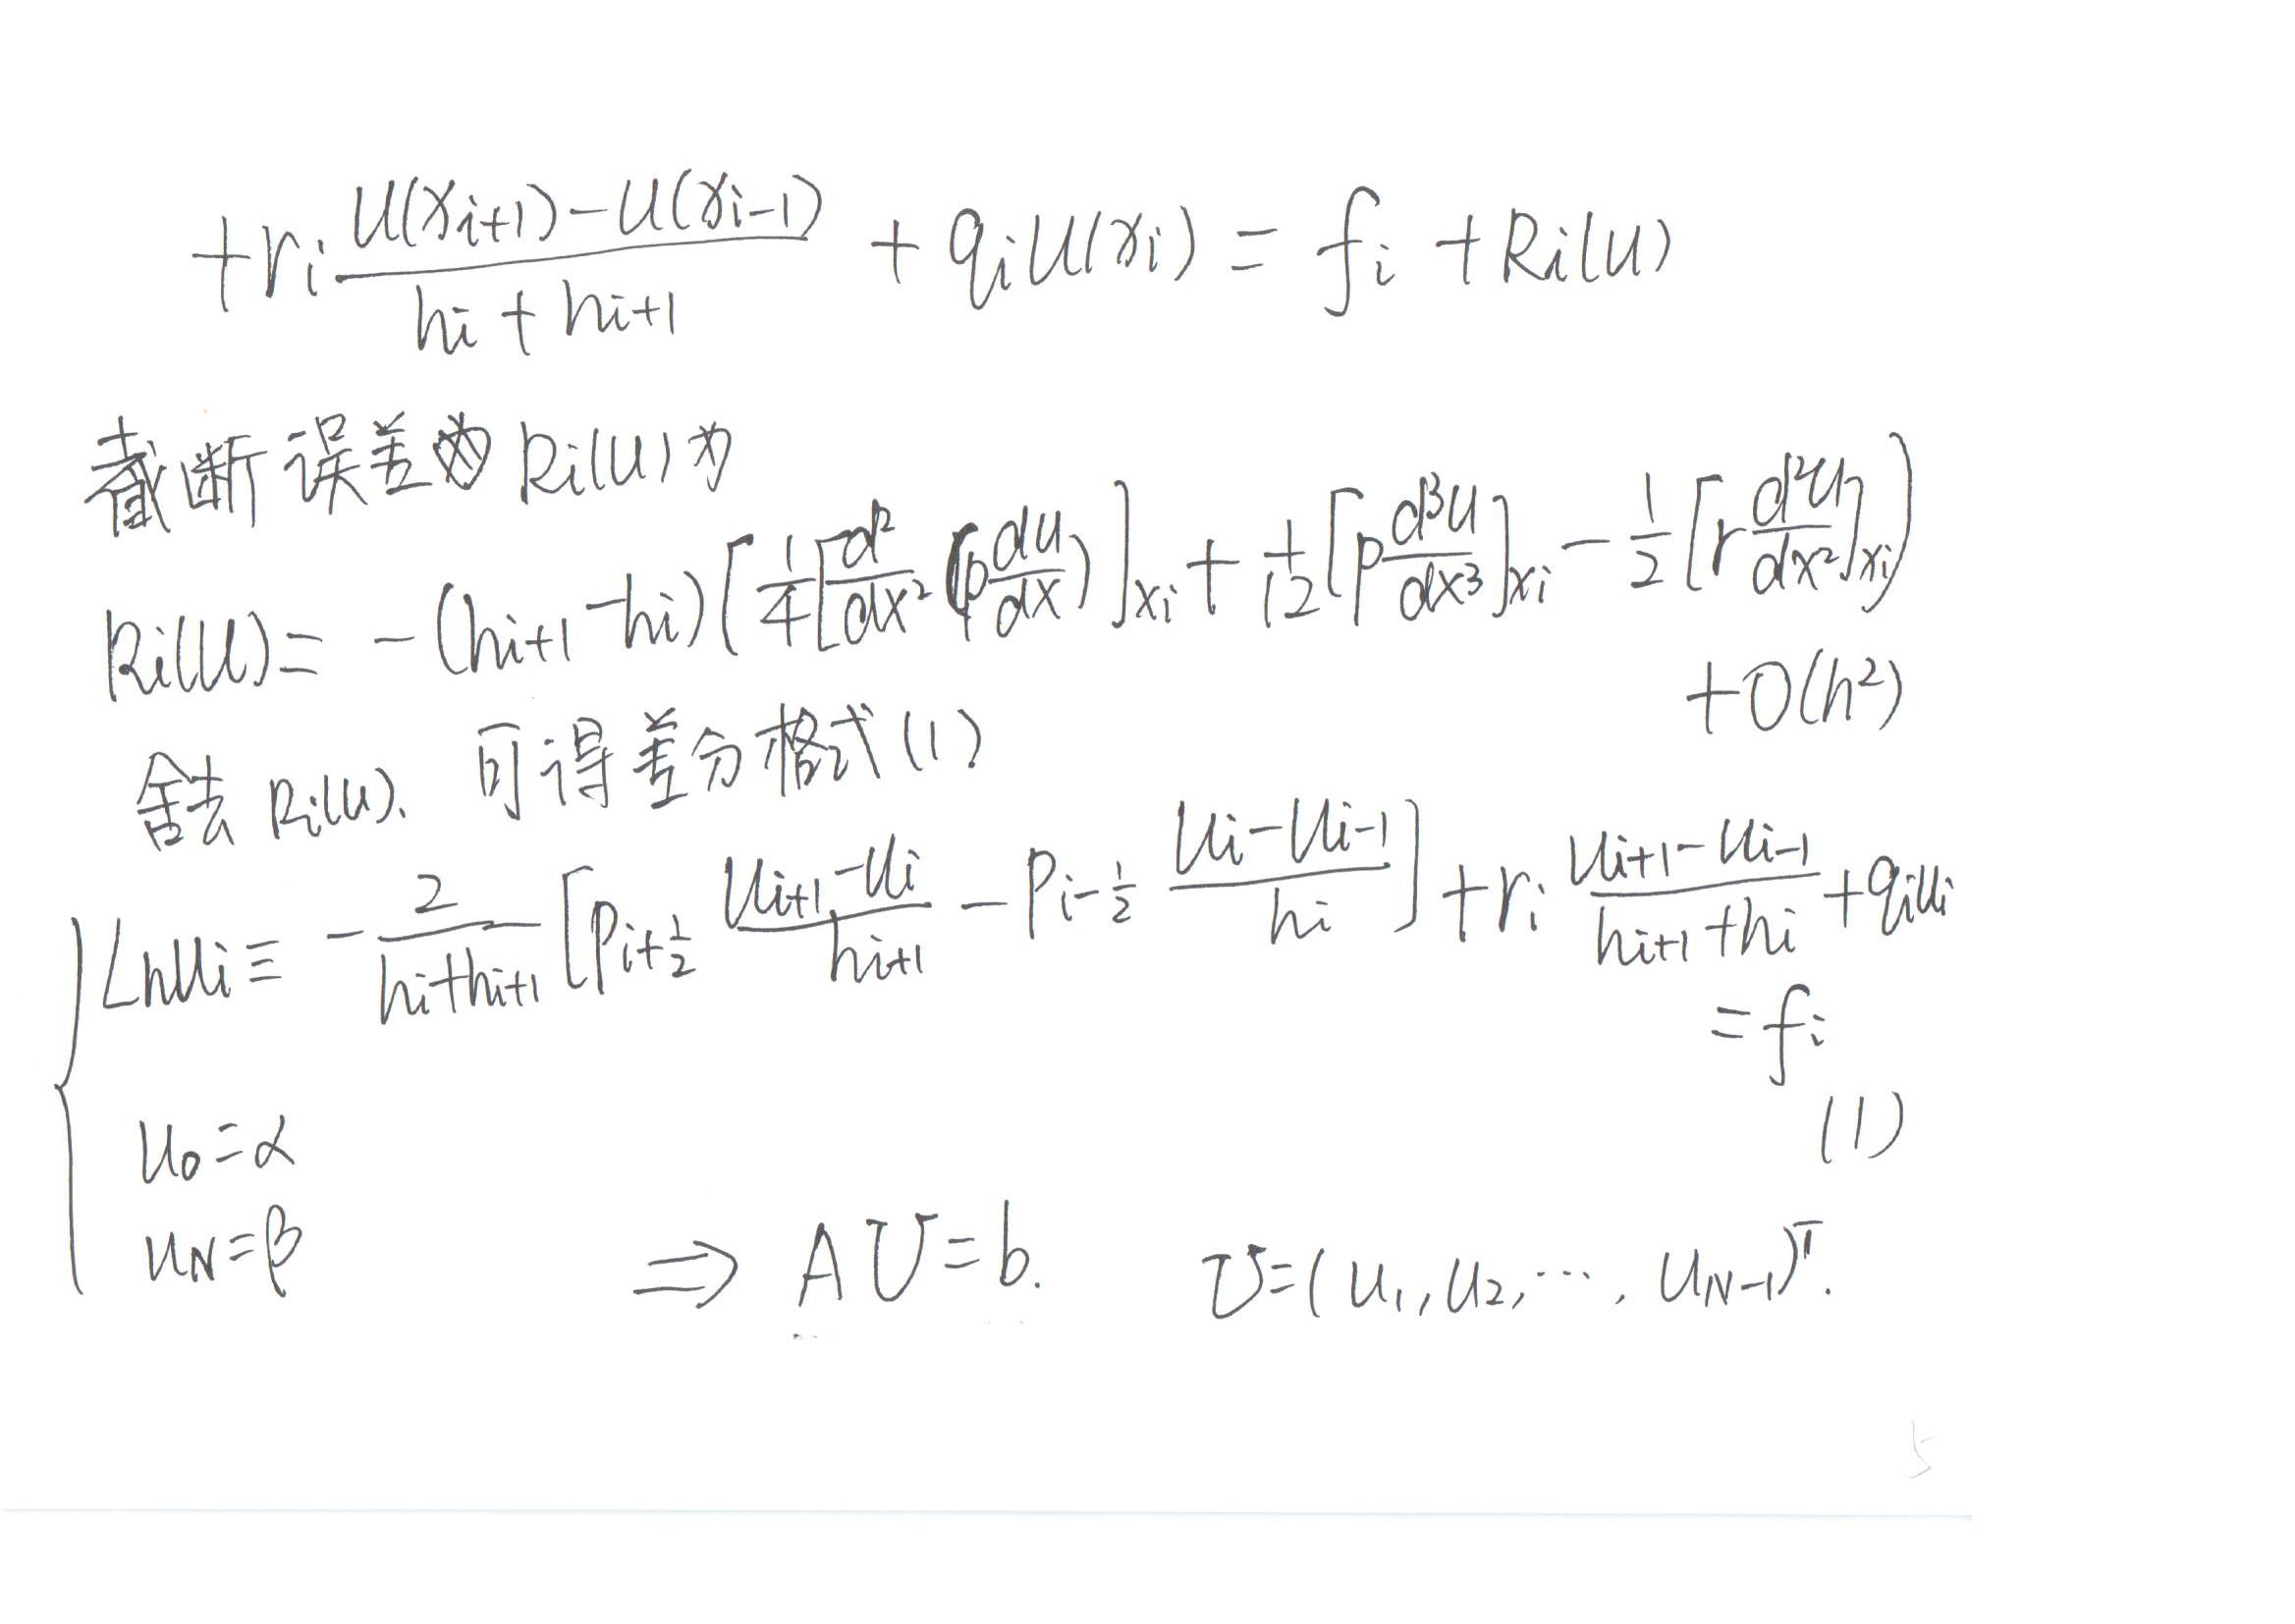 + r_i \frac{u(x_{i+1}) - u(x_{i-1})}{h_i + h_{i+1}} + q_i u(x_i) = f_i + R_i(u)
截断误差 R_i(u) 为
R_i(u) = -(h_{i+1} - h_i) [ \frac{1}{4} [ \frac{d^2}{dx^2} (p \frac{du}{dx}) ]_{x_i} + \frac{1}{12} [ p \frac{d^3u}{dx^3} ]_{x_i} - \frac{1}{2} [ r \frac{d^2u}{dx^2} ]_{x_i} )
+ O(h^2)
舍去 R_i(u)、可得差分格式(1)
L_h u_i ≡ - \frac{2}{h_i + h_{i+1}} [ p_{i+\frac{1}{2}} \frac{u_{i+1} - u_i}{h_{i+1}} - p_{i-\frac{1}{2}} \frac{u_i - u_{i-1}}{h_i} ] + r_i \frac{u_{i+1} - u_{i-1}}{h_{i+1} + h_i} + q_i u_i
= f_i
(1)
u_0 = α
u_N = β
⇒ A U = b. U = (u_1, u_2, ⋯, u_{N-1})^T.
5